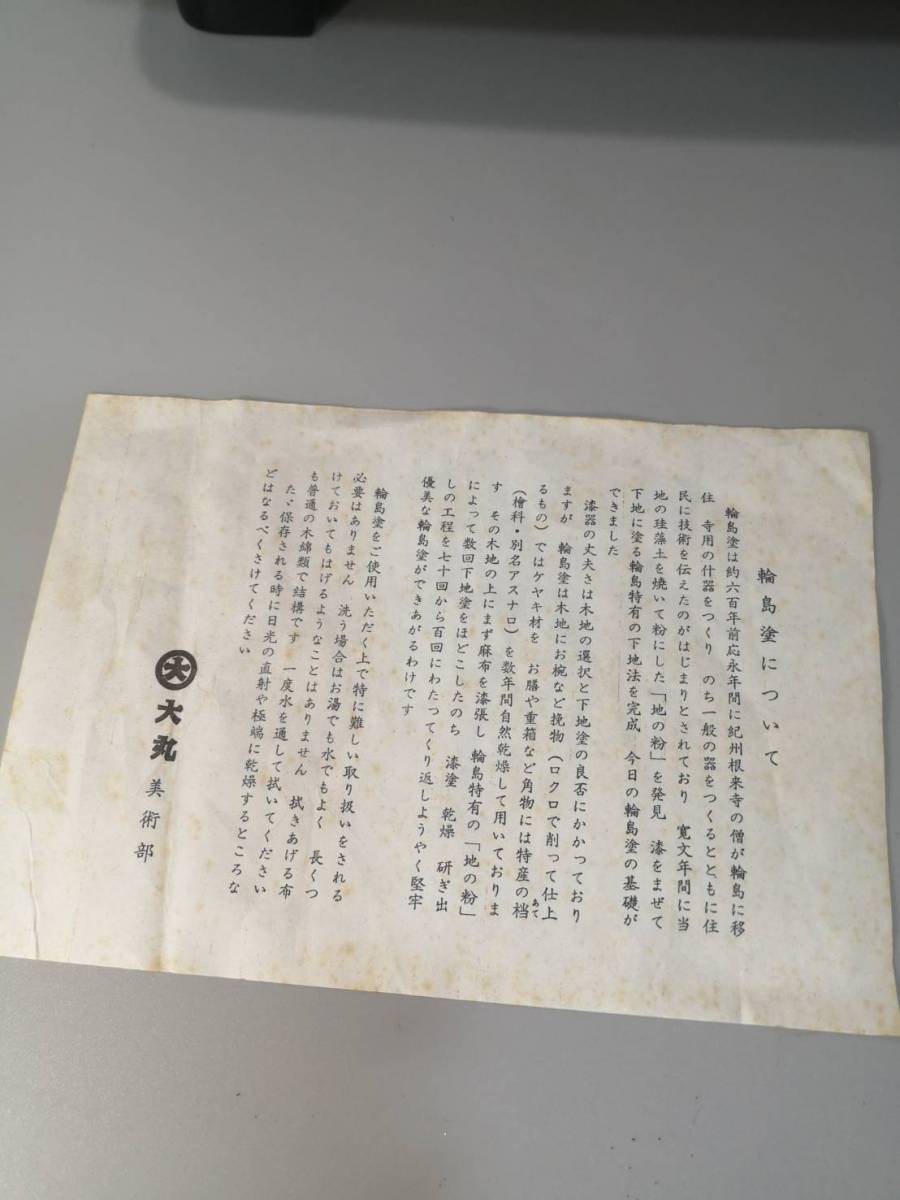 輪島塗について
輪島塗は約六百年前応永年間に紀州根来寺の僧が輪島に移
住　寺用の什器をつくり　のち一般の器をつくるとゝもに住
民に技術を伝えたのがはじまりとされており　寛文年間に当
地の珪藻土を焼いて粉にした「地の粉」を発見　漆をまぜて
下地に塗る輪島特有の下地法を完成　今日の輪島塗の基礎が
できました
漆器の丈夫さは木地の選択と下地塗の良否にかかっており
ますが　輪島塗は木地にお椀など挽物（ロクロで削って仕上
るもの）ではケヤキ材を　お膳や重箱など角物には特産の档
あて
（檜科・別名アスナロ）を数年間自然乾燥して用いておりま
す　その木地の上にまず麻布を漆張し　輪島特有の「地の粉」
によって数回下地塗をほどこしたのち　漆塗　乾燥　研ぎ出
しの工程を七十回から百回にわたってくり返しようやく堅牢
優美な輪島塗ができあがるわけです
輪島塗をご使用いただく上で特に難しい取り扱いをされる
必要はありません　洗う場合はお湯でも水でもよく　長くつ
けておいてもはげるようなことはありません　拭きあげる布
も普通の木綿類で結構です　一度水を通して拭いてください
たゞ保存される時に日光の直射や極端に乾燥するところな
どはなるべくさけてください
大 大丸 美術部